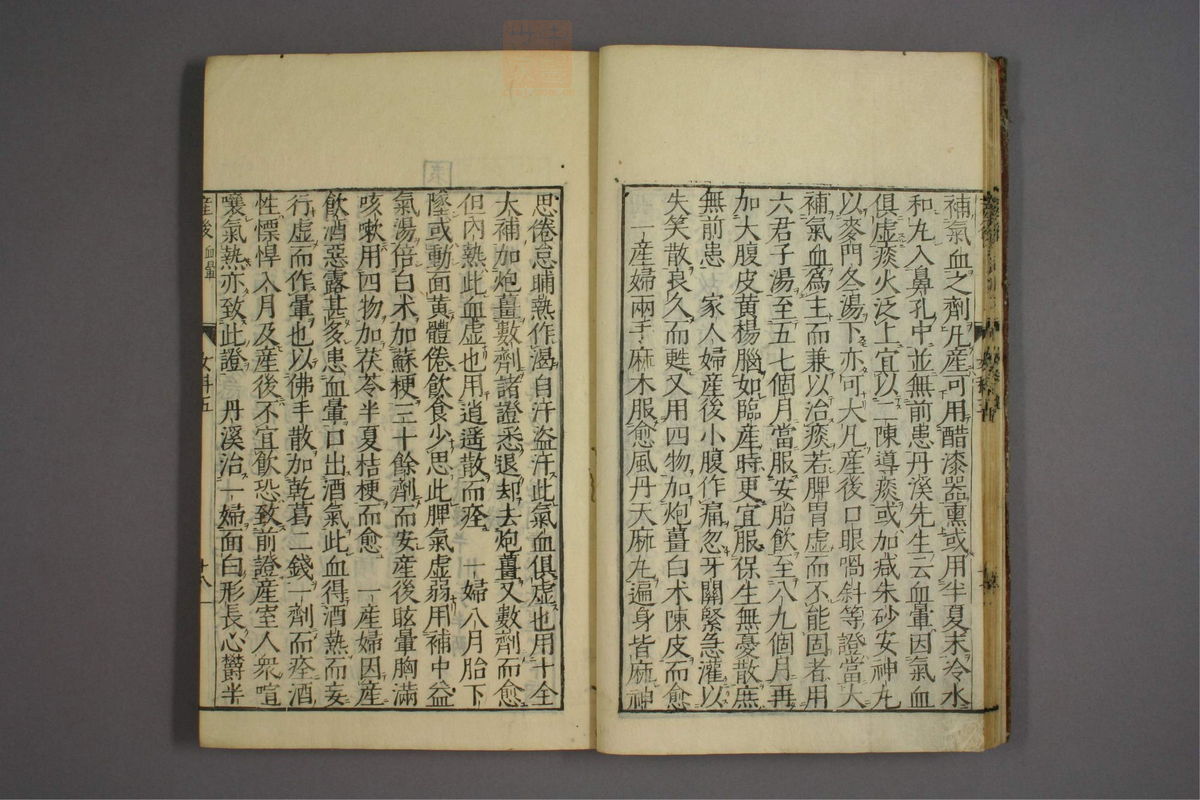 補氣血之劑凡産可用醋漆器熏或用半夏末冷水
和丸入鼻孔中並無前患丹溪先生云血暈因氣血
俱虛痰火泛上宜以二陳導痰或加減朱砂安神丸
以麥門冬湯下亦可大凡産後口眼喎斜等證當大
補氣血爲主而兼以治痰若脾胃虛而不能固者用
六君子湯至五七個月當服安胎飲至八九個月再
加大腹皮黄楊腦如臨産時更宜服保生無憂散庶
無前患　家人婦産後小腹作痛忽牙關緊急灌以
失笑散良久而甦又用四物加炮薑白术陳皮而愈
一産婦兩手麻木服愈風丹天麻丸遍身皆麻神
思倦怠晡熱作渴自汗盗汗此氣血俱虛也用十全
大補加炮薑數劑諸證悉退却去炮薑又數劑而愈
但内熱此血虛也用逍遥散而痊　一婦八月胎下
墜或動面黄體倦飲食少思此脾氣虛弱用補中益
氣湯倍白术加蘇梗三十餘劑而安産後眩暈胸滿
咳嗽用四物加茯苓半夏桔梗而愈　一産婦因産
飲酒惡露甚多患血暈口出酒氣此血得酒熱而妄
行虛而作暈也以佛手散加乾葛二錢一劑而痊酒
性慓悍入月及産後不宜飲恐致前證産室人衆喧
嚷氣熱亦致此證　丹溪治一婦面白形長心欝半
産後　血暈
女科五
十八